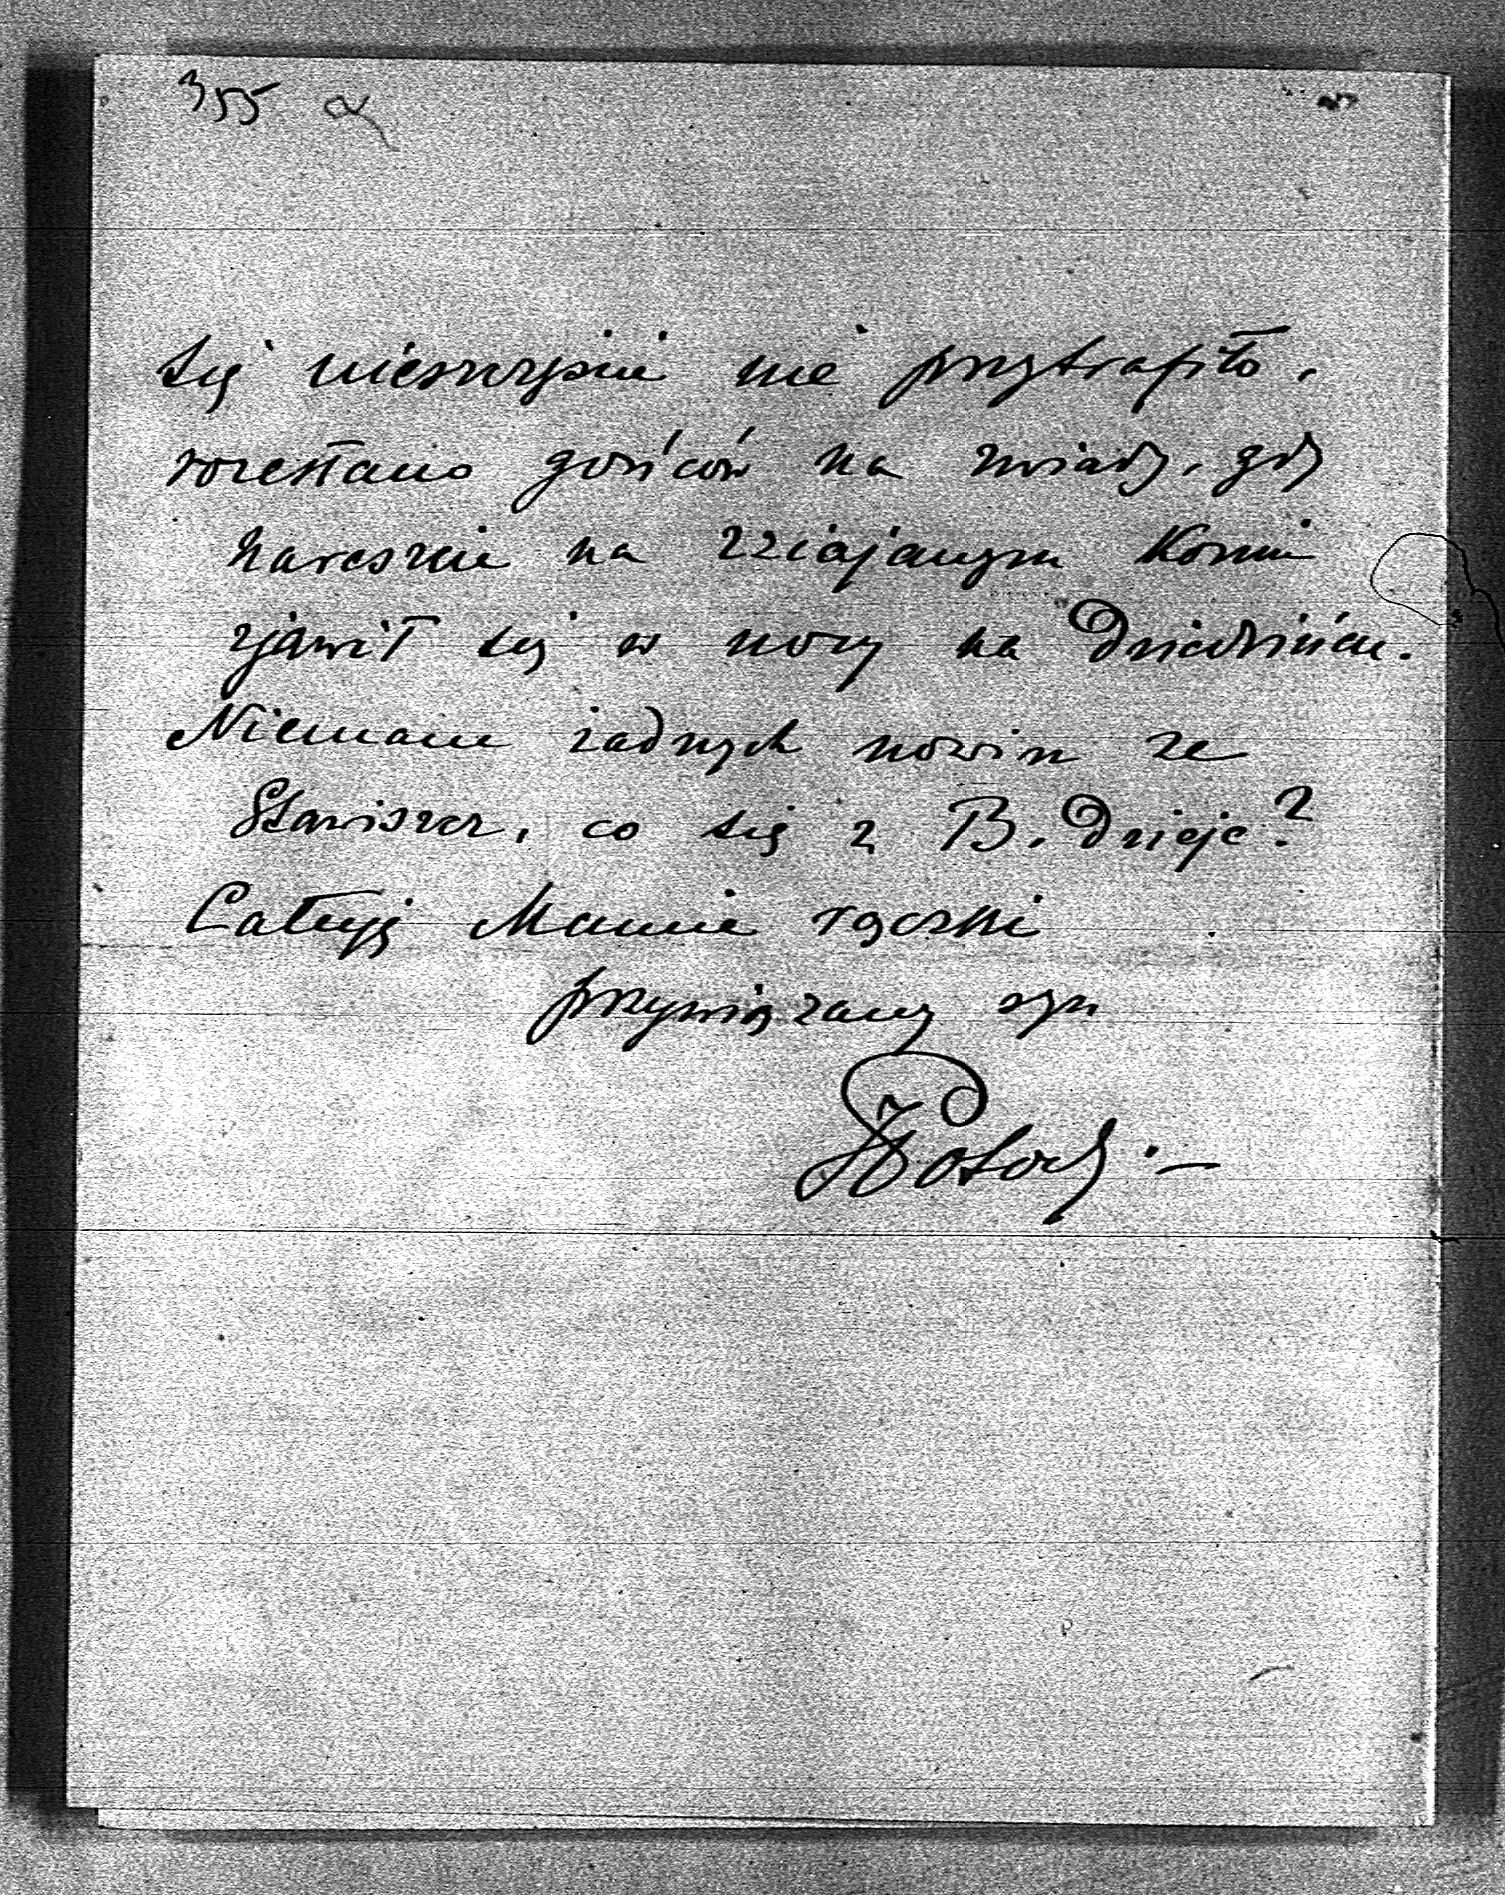 355
się nieszczęście nie przytrafiło,
rozesłano gońców na zwiady, gdy
nareszcie na zziajanym koniu
zjawił się w nocy na dziedzińcu.
Niemam żadnych nowin ze
Stawiszcz, co się z B. dzieje?
Całuję Mamie rączki
przywiązany syn
Potocki. —